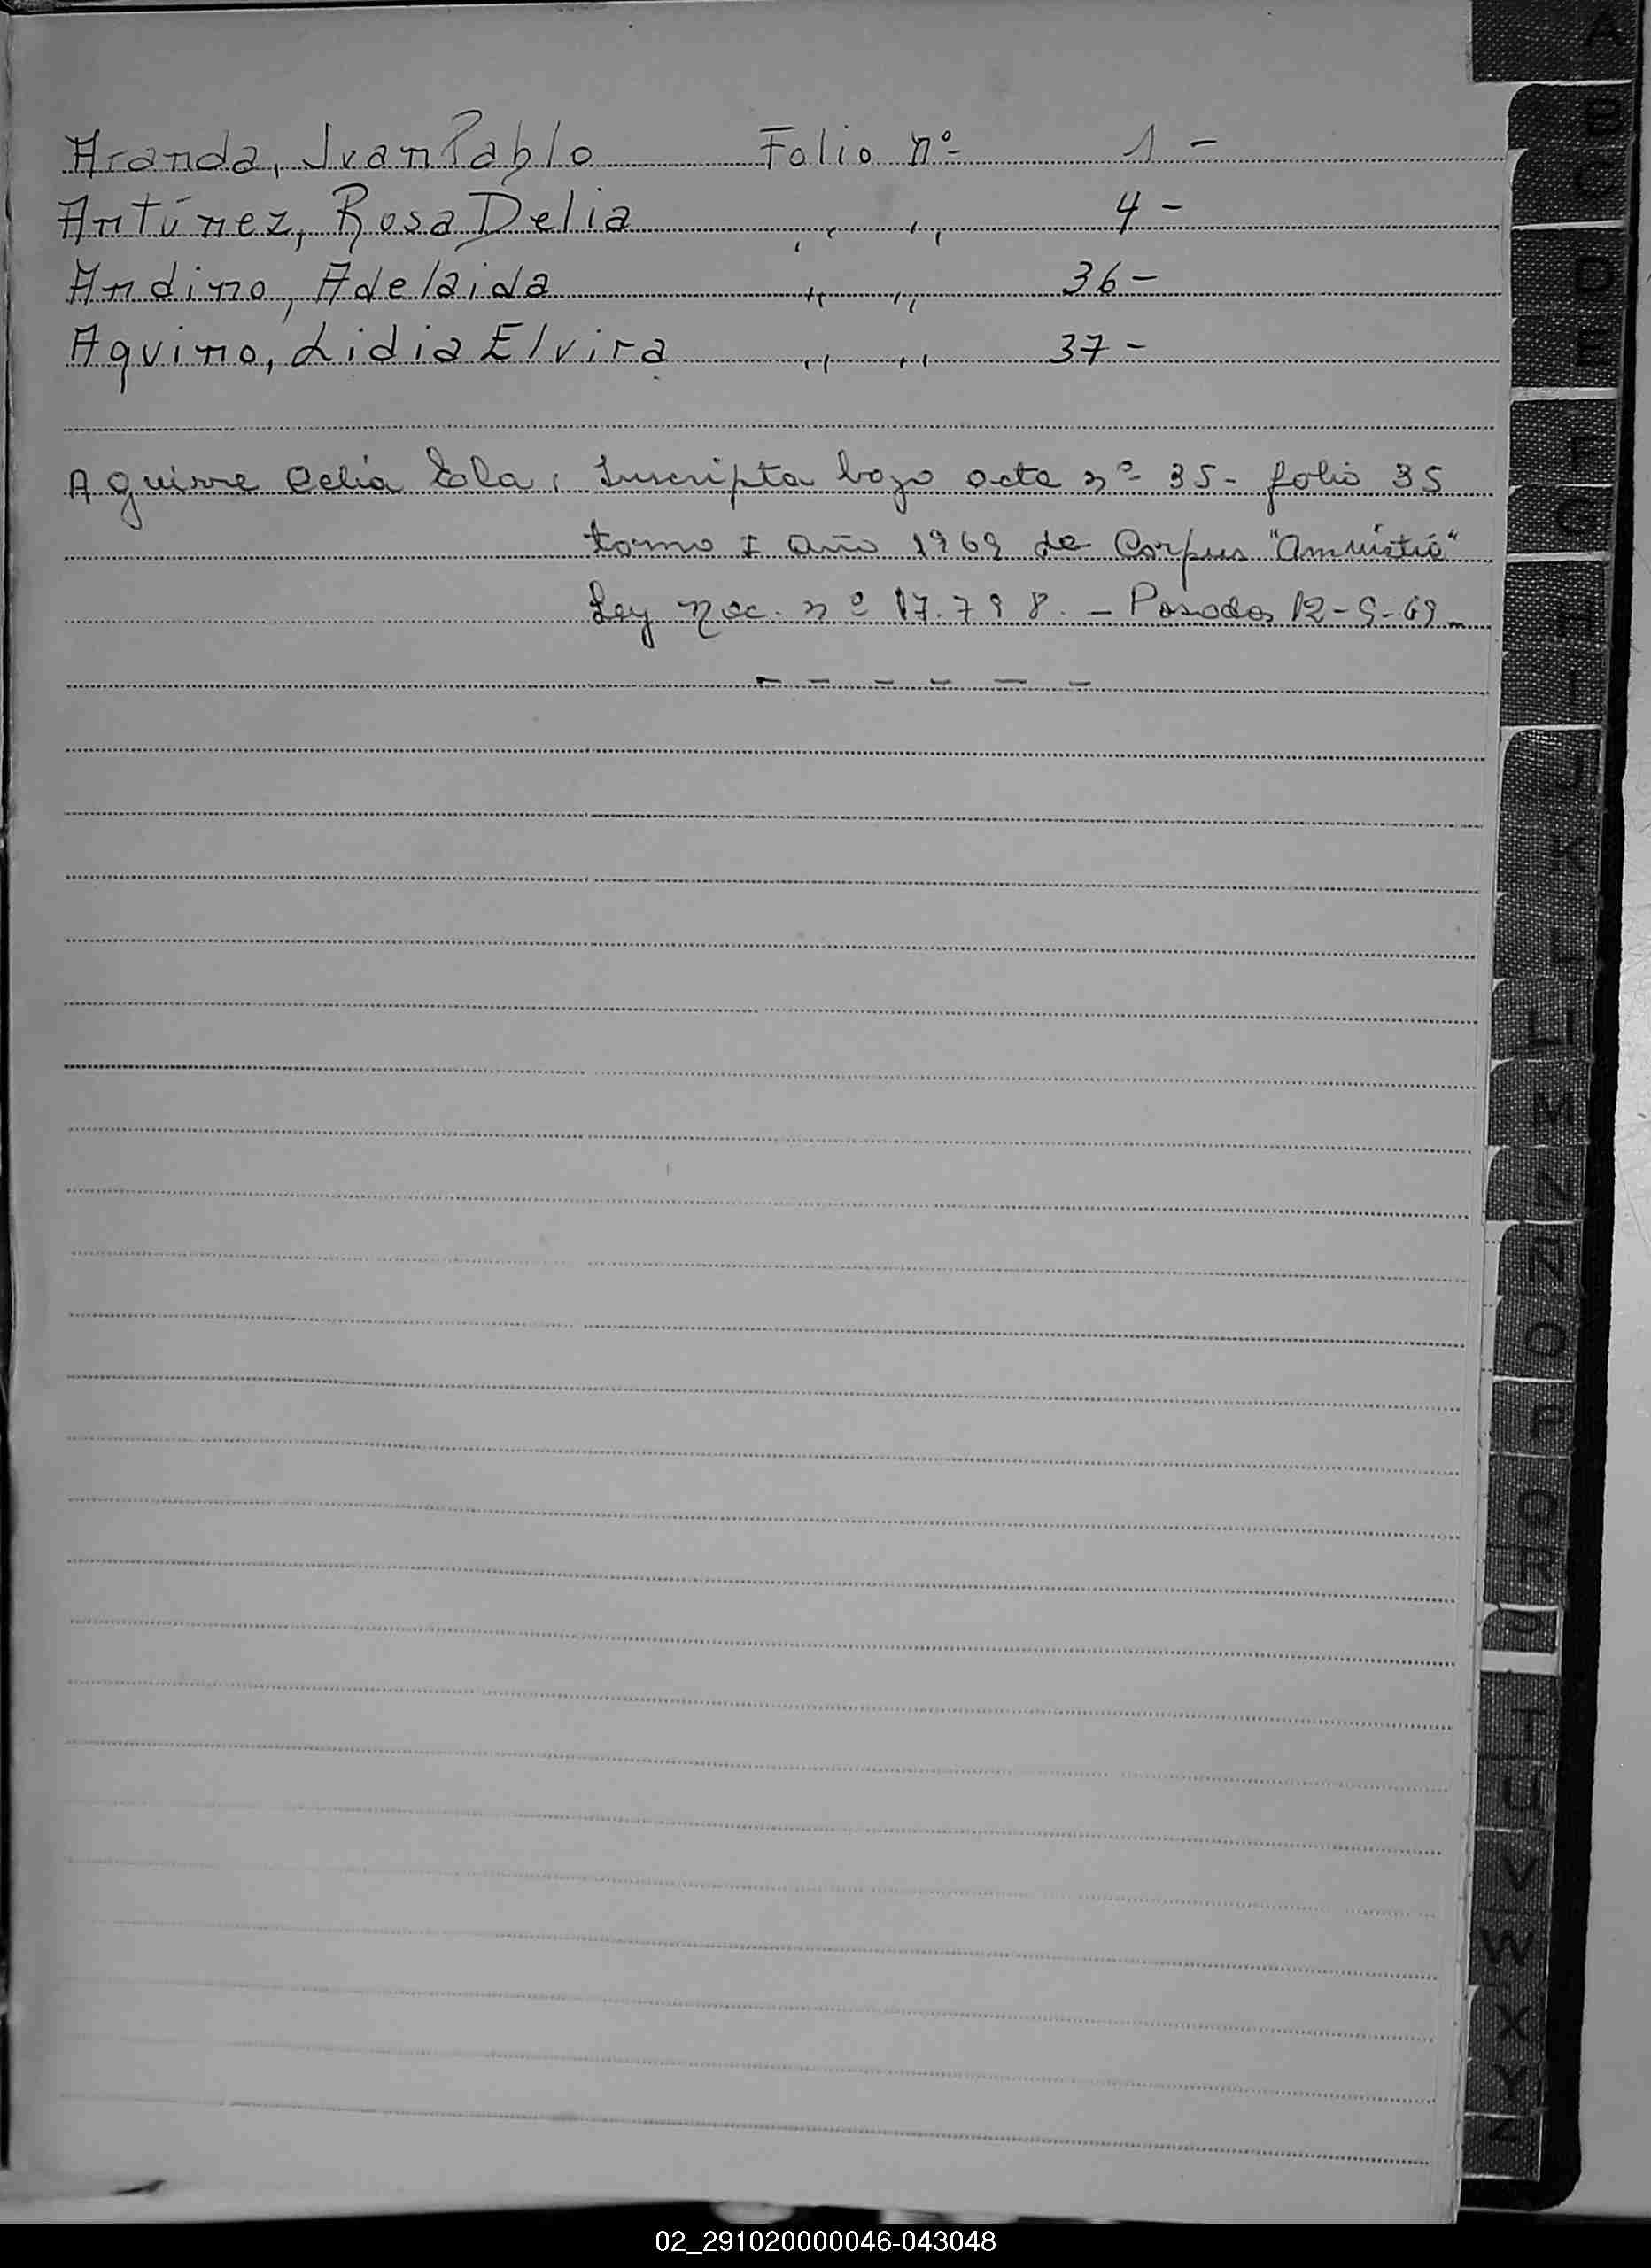 Aranda, Juan Pablo Folio nº 1 -
Antúnez, Rosa Delia ,, ,, 4 -
Andino, Adelaida ,, ,, 36 -
Aquino, Lidia Elvira ,, ,, 37 -
Aguirre Celia Inscripta bajo acta nº 35 - folio 35
tomo I año 1969 de Corpus "Amnistía"
Ley nac. nº 17.798. - Posadas 12-9-69 -
A
B
C
D
E
F
G
H
I
J
K
L
LL
M
N
Ñ
O
P
Q
R
S
T
U
V
W
X
Y
Z
02_291020000046-043048